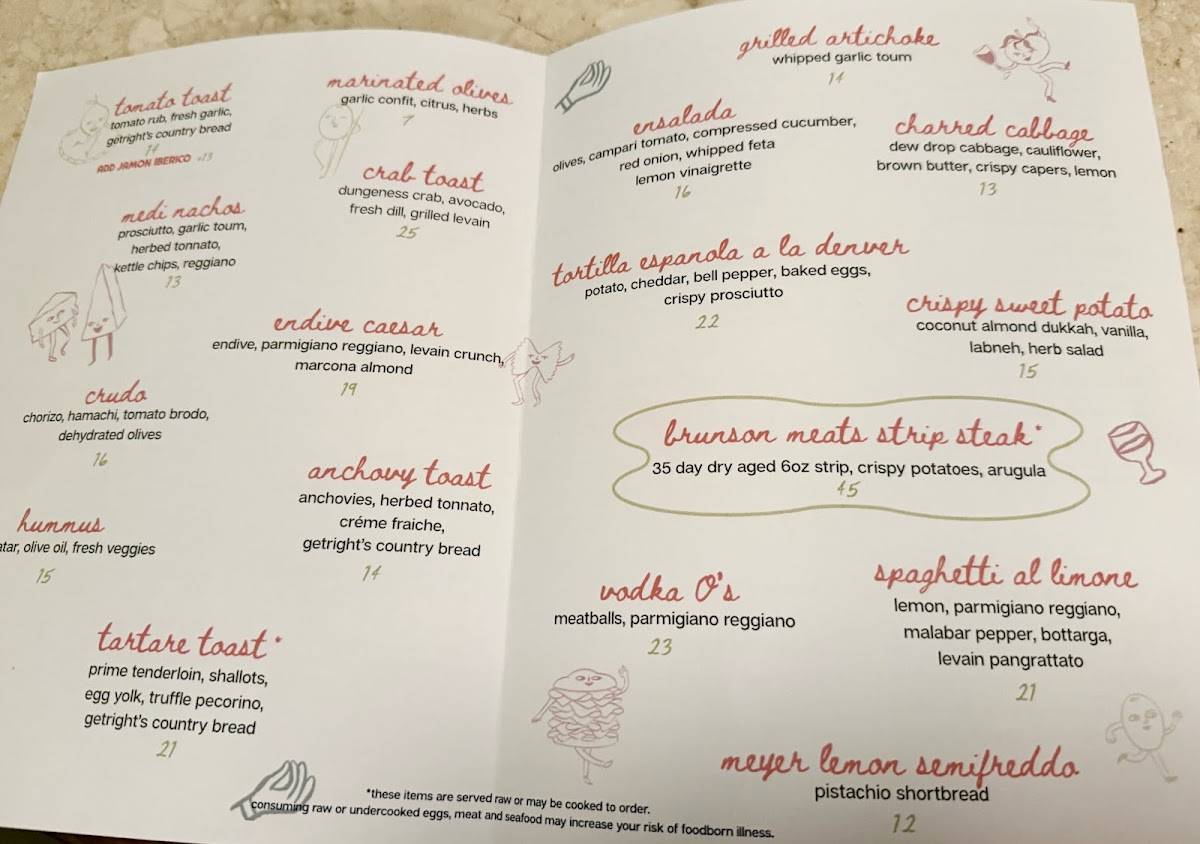 tomato toast
tomato rub, fresh garlic,
getright's country bread
14
ADD JAMON IBERICO +13
marinated olives
garlic confit, citrus, herbs
7
crab toast
dungeness crab, avocado,
fresh dill, grilled levain
25
medi nachos
prosciutto, garlic toum,
herbed tonnato,
kettle chips, reggiano
13
endive caesar
endive, parmigiano reggiano, levain crunch,
marcona almond
19
crudo
chorizo, hamachi, tomato brodo,
dehydrated olives
16
anchovy toast
anchovies, herbed tonnato,
créme fraiche,
getright's country bread
14
hummus
olive oil, fresh veggies
15
tartare toast*
prime tenderloin, shallots,
egg yolk, truffle pecorino,
getright's country bread
21
grilled artichoke
whipped garlic toum
14
ensalada
olives, campari tomato, compressed cucumber,
red onion, whipped feta
lemon vinaigrette
16
charred cabbage
dew drop cabbage, cauliflower,
brown butter, crispy capers, lemon
13
tortilla espanola a la denver
potato, cheddar, bell pepper, baked eggs,
crispy prosciutto
22
crispy sweet potato
coconut almond dukkah, vanilla,
labneh, herb salad
15
brunson meats strip steak*
35 day dry aged 6oz strip, crispy potatoes, arugula
45
vodka O's
meatballs, parmigiano reggiano
23
spaghetti al limone
lemon, parmigiano reggiano,
malabar pepper, bottarga,
levain pangrattato
21
meyer lemon semifreddo
pistachio shortbread
12
*these items are served raw or may be cooked to order.
consuming raw or undercooked eggs, meat and seafood may increase your risk of foodborn illness.